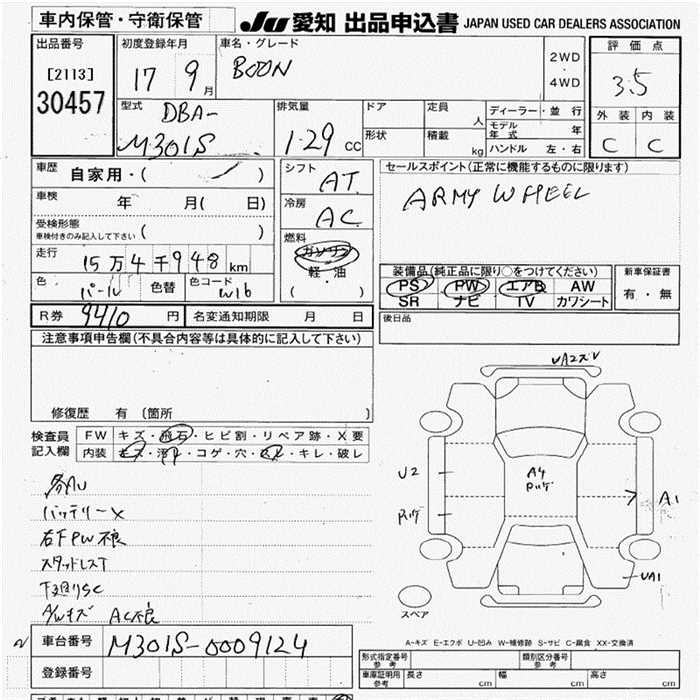 車内保管・守衛保管
JU 愛知 出品申込書 JAPAN USED CAR DEALERS ASSOCIATION
出品番号
[2113]
30457
初度登録年月
17 9月
車名・グレード
BOON
2WD
・
4WD
評価点
3.5
外装 内装
C C
型式
DBA-
M301S
排気量
1.29 CC
ドア
形状
定員
人
積載
kg
ディーラー・並行
モデル年式 年
ハンドル 左・右
車歴
自家用・( )
車検
年 月( 日)
受検形態
車検付きのみ記入して下さい ( )
走行
15万4千948km
色
パール
色替
色コード
W16
シフト
AT
冷房
AC
燃料
ガソリン
軽・油
( )
セールスポイント(正常に機能するものに限ります)
ARMY WHEEL
装備品(純正品に限り○をつけてください)
PS PW エアB AW
SR ナビ TV カワシート
新車保証書
有・無
R券 9410円
名変通知期限 月 日
後日品
注意事項申告欄(不具合内容等は具体的に記入して下さい)
修復歴 有 〔箇所 〕
検査員記入欄
FW キズ・飛石・ヒビ割・リペア跡・X要
内装 キズ・汚れ・コゲ・穴・スレ・キレ・破レ
各AU
バッテリーX
右FPW不良
スタッドレスT
下廻りSC
A/Wキズ AC不良
UA2ズU
U2
A4
A1
UA1
スペア
A-キズ E-エクボ U-凹み W-補修跡 S-サビ C-腐食 XX-交換済
車台番号 M301S-0009124
登録番号
形式指定番号
参考
類別区分番号
参考
車庫証明用
参考
長さ cm 幅 cm 高さ cm